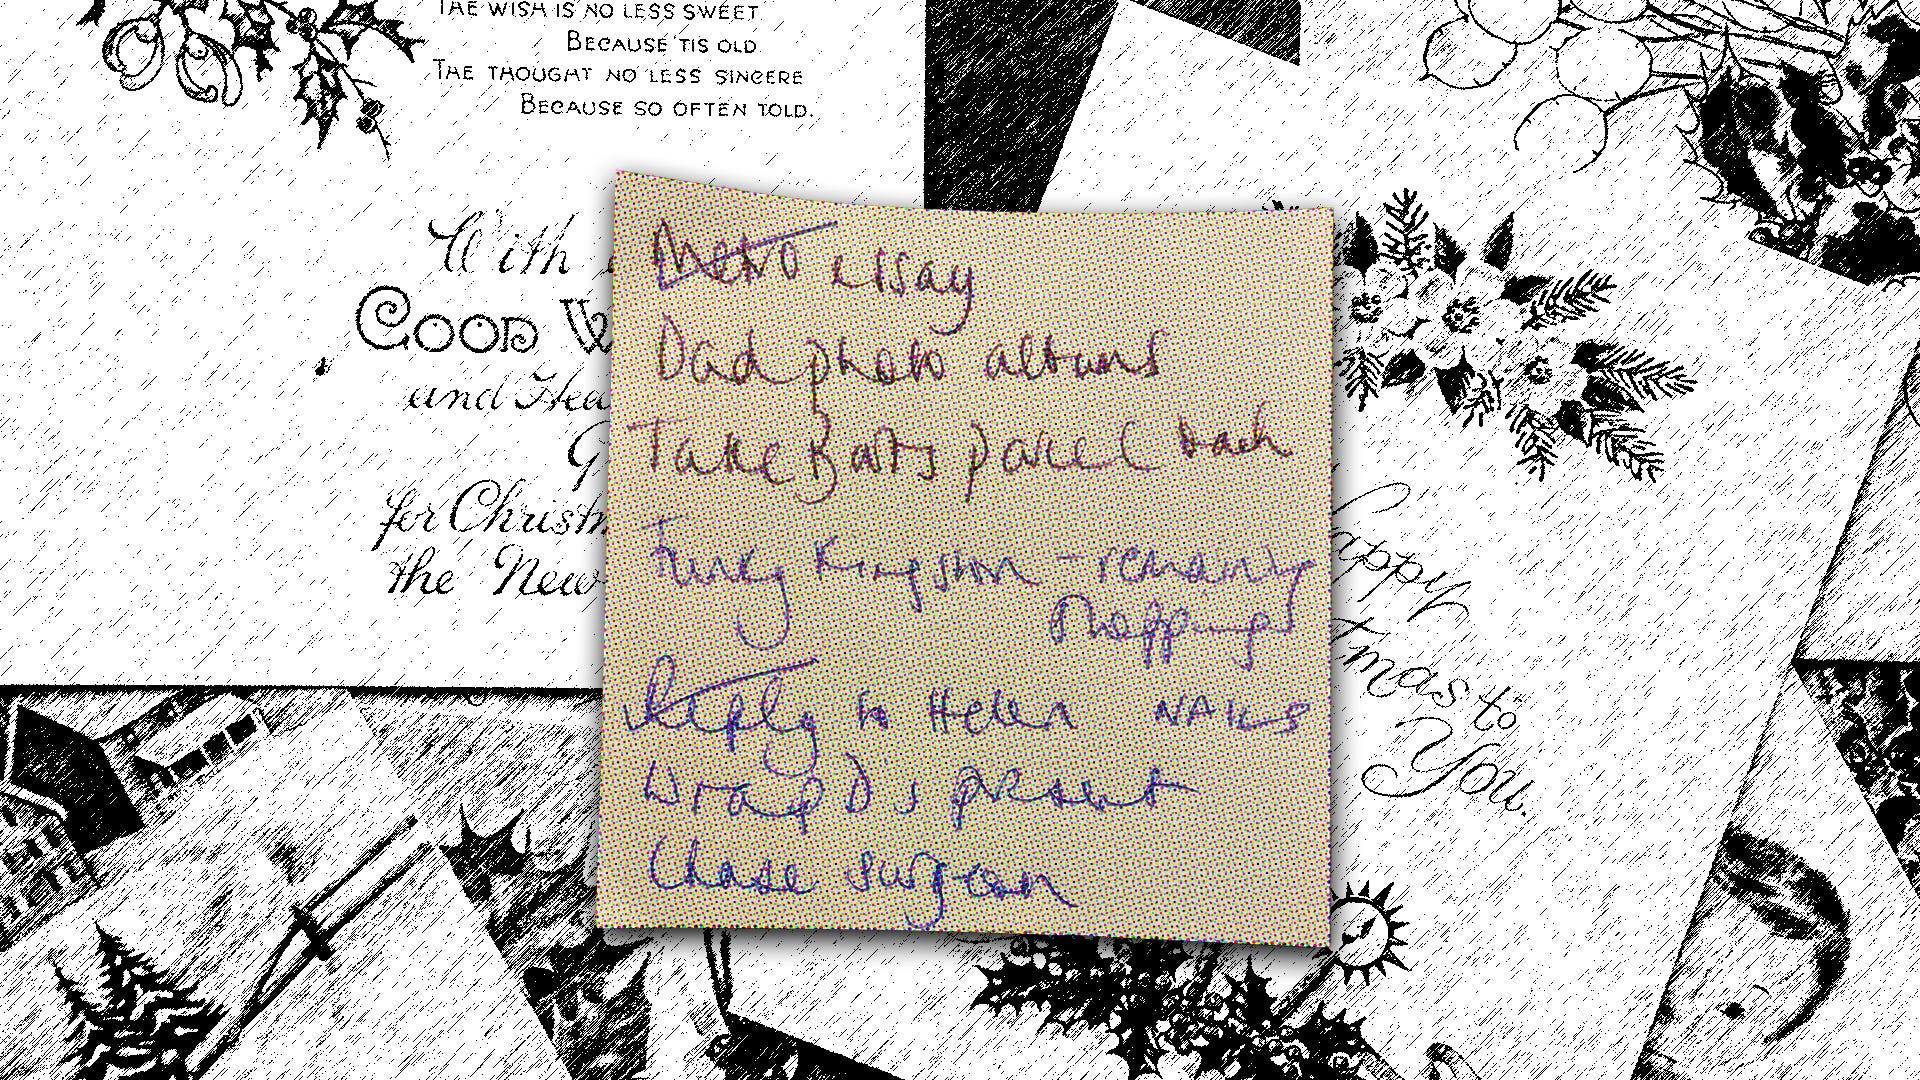 THE WISH IS NO LESS SWEET
BECAUSE 'TIS OLD
THE THOUGHT NO LESS SINCERE
BECAUSE SO OFTEN TOLD.
With
GOOD W
and Hea
G
for Christm
the New
Metro essay
Dad photo albums
Take parcel back
Funky Kingston -
shopping
Reply to Helen NAILS
Wrap D's present
Chase surgeon
appy
tmas to
You.